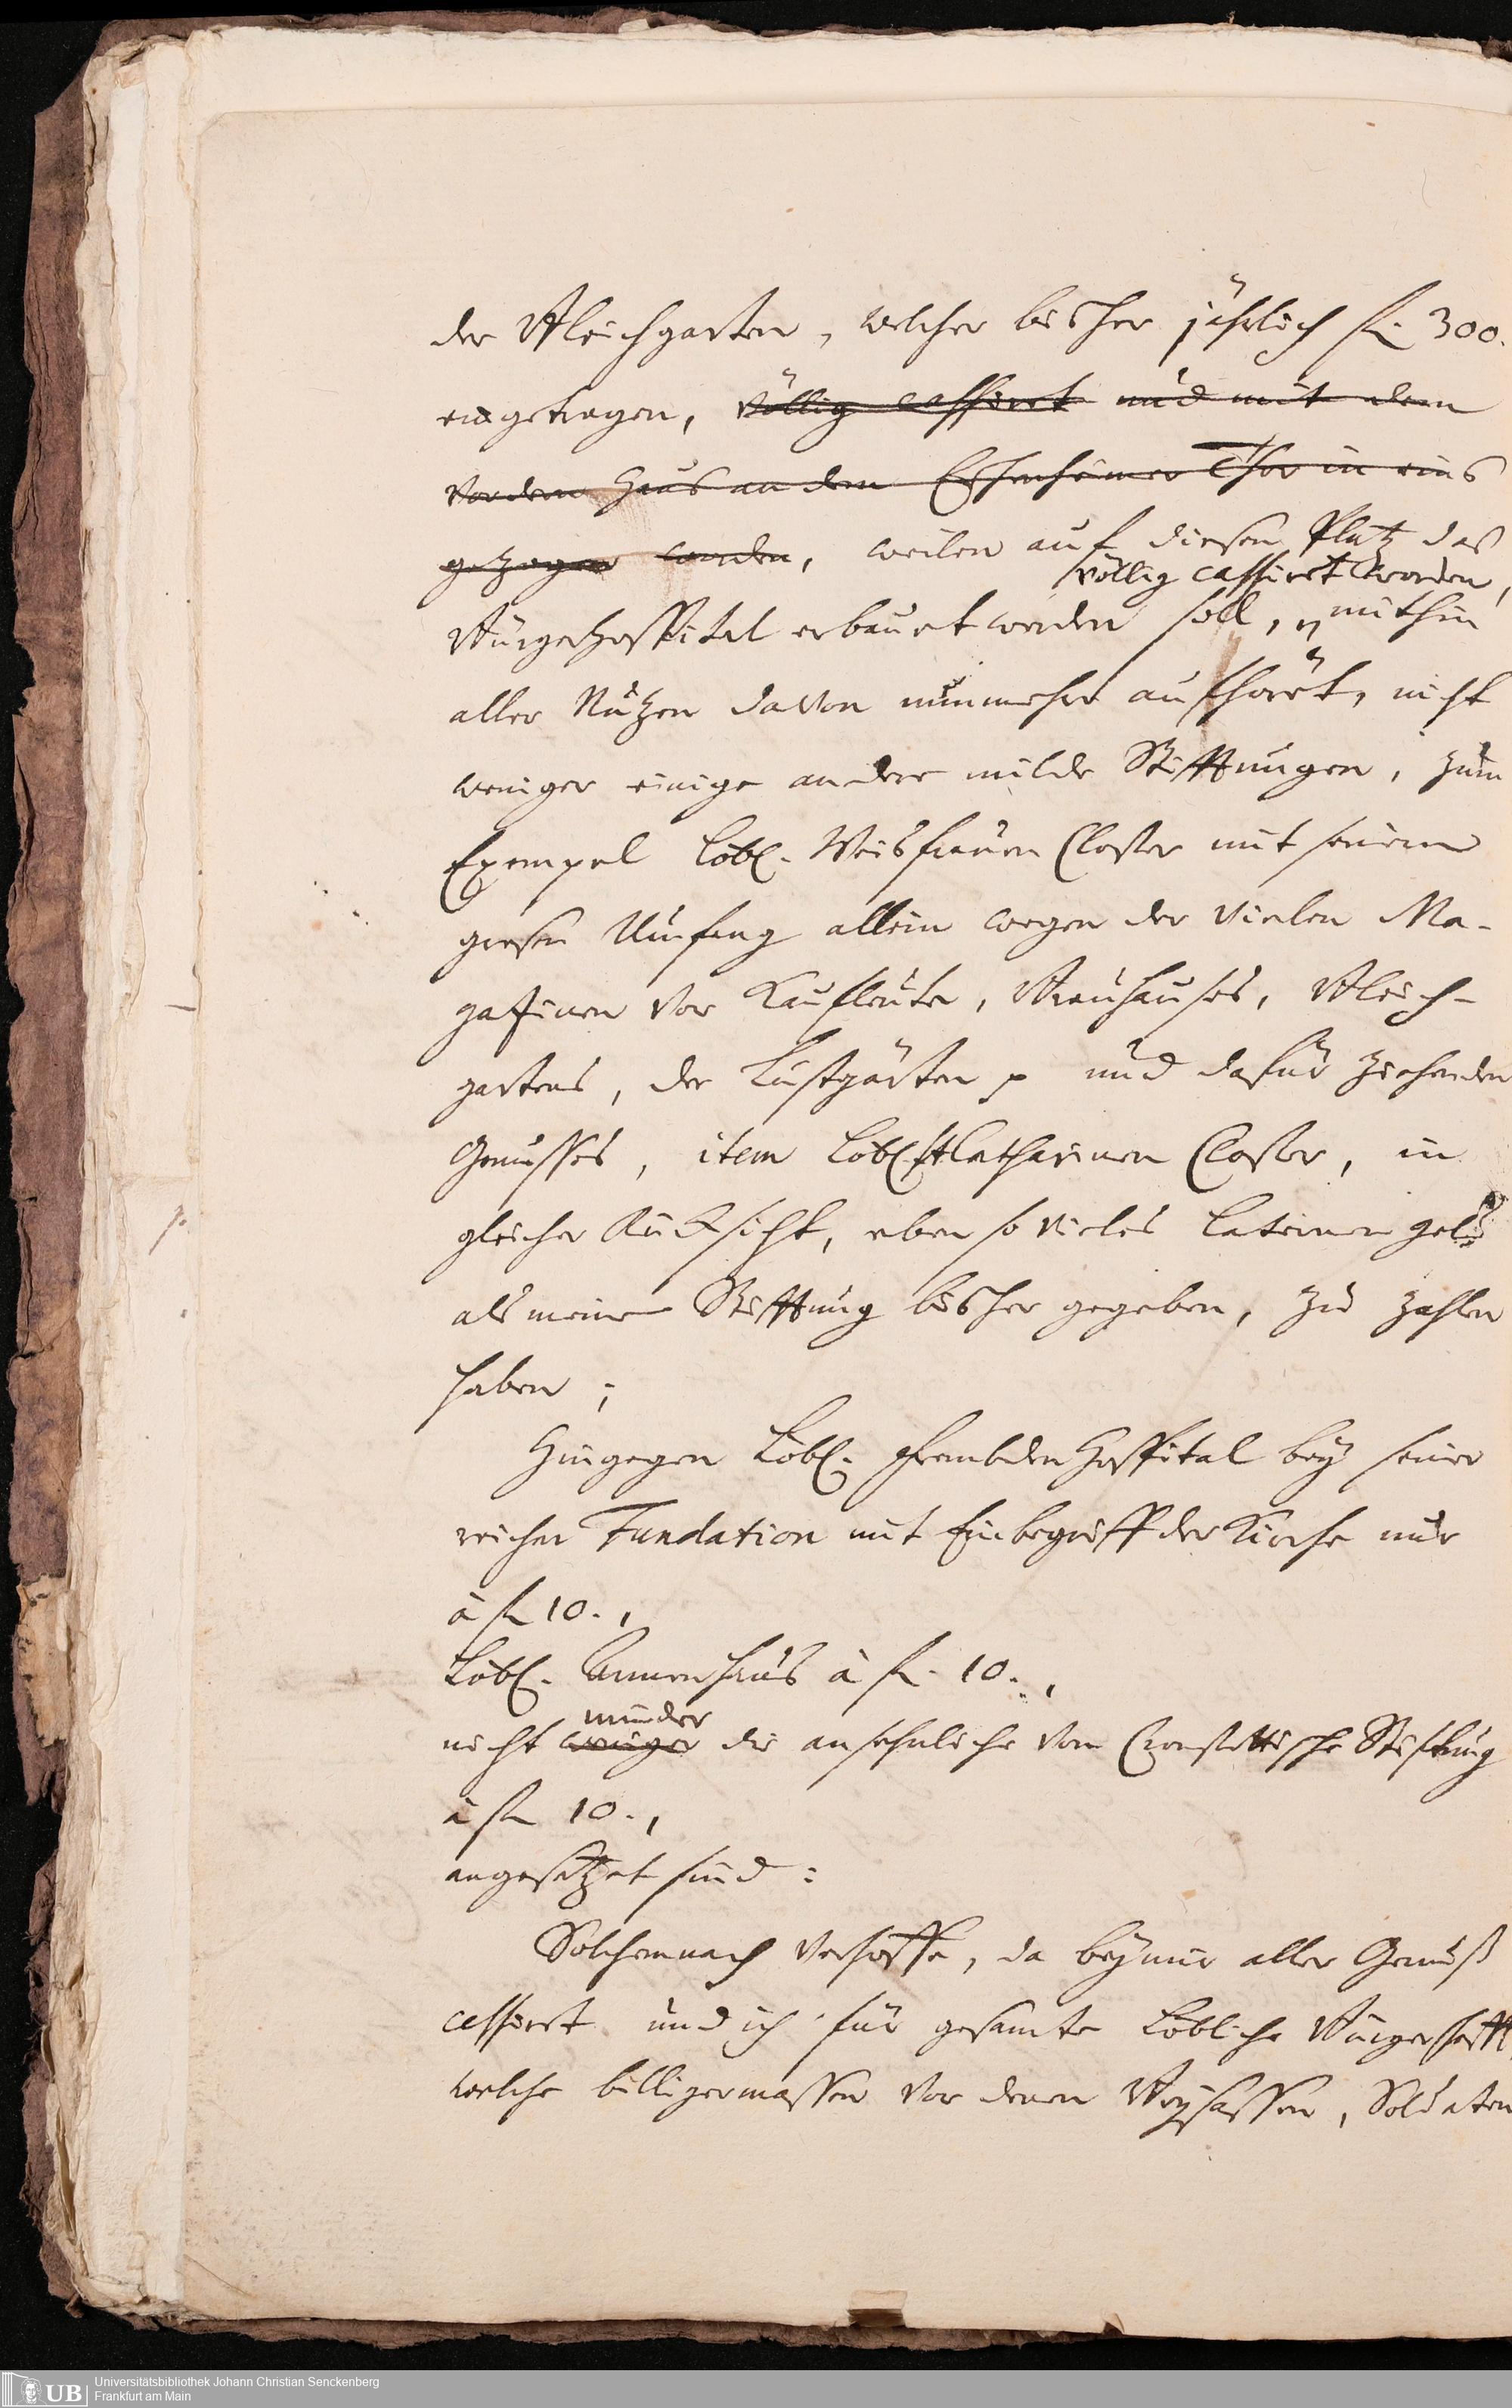 der Bleichgarten, welcher bisher jährlich fl. 300.
eingetragen, völlig cassiret und mit dem
vordern Haus an dem Eschenheimer Thor in eins
gezogen worden, weilen auf diesen Platz das
völlig cassiret worden,
Bürgerhospital erbauet werden soll, mithin
aller Nutzen davon nunmehro aufhöret, nicht
weniger einige andere milde Stifftungen, zum
Exempel Löbl. Weisfrauen Closter mit seinem
grosen Umfang allein wegen der vielen Ma-
gazinen vor Kaufleute, Brauhauses, Bleich-
gartens, der Lustgärten p und dafür ziehenden
Genusses, item Löbl. St Catharinen Closter, in
gleicher Rücksicht, eben so vieles Laternengeld
als meine Stifftung bisher gegeben, zu zahlen
haben;
Hingegen Löbl. Frembden Hospital bey seiner
reichen Fundation mit Einbegriff der Kirche nur
à fl 10.,
Löbl. Armenhaus à fl. 10.,
minder
nicht weniger die ansehnliche von Cronstettische Stiftung
à fl 10.,
angesetzet sind:
Solchemnach verhoffe, da bey mir aller Genuß
cessiret und ich für gesamte Löbliche Bürgerschafft
welche billigermassen vor denen Beysassen, Soldaten
UB Universitätsbibliothek Johann Christian Senckenberg
Frankfurt am Main